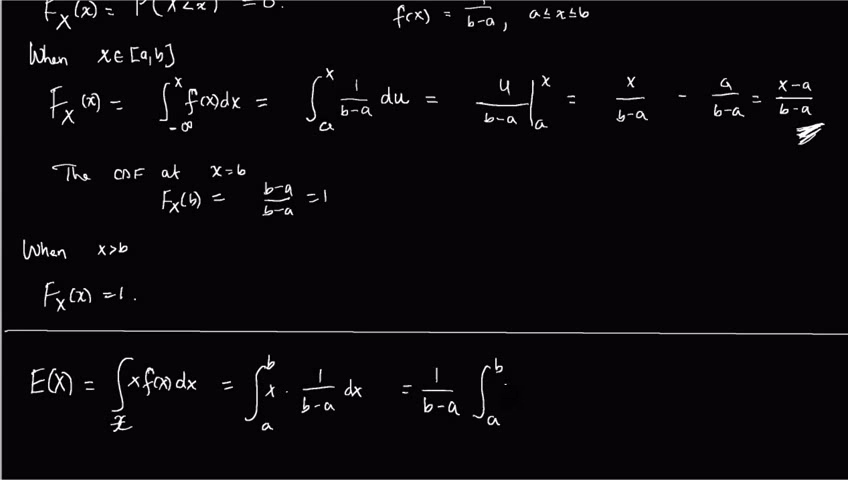 F_X(x) = P(X<x) = 0.
f(x) = 1/(b-a), a≤x≤b
When x∈[a,b]
F_X(x) = ∫_{-∞}^{x} f(x)dx = ∫_{a}^{x} 1/(b-a) du = u/(b-a) |_{a}^{x} = x/(b-a) - a/(b-a) = (x-a)/(b-a)
The CDF at x=b
F_X(b) = (b-a)/(b-a) = 1
When x>b
F_X(x) = 1.
E(X) = ∫_{x} x f(x) dx = ∫_{a}^{b} x · 1/(b-a) dx = 1/(b-a) ∫_{a}^{b}